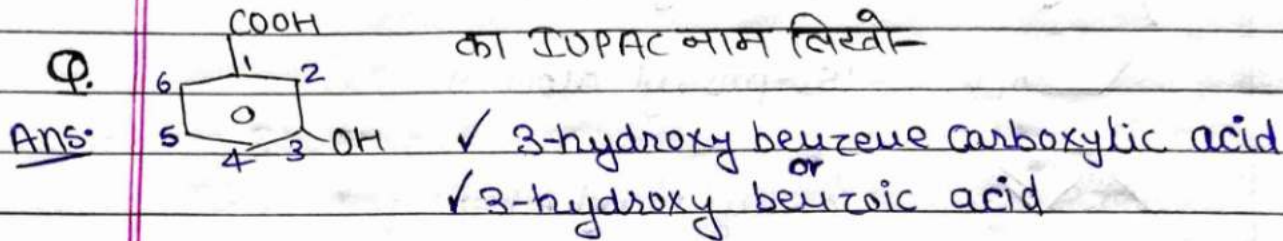 COOH
Q. 1 2 3 4 5 6 OH का IUPAC नाम लिखो-
Ans. ✓ 3-hydroxy benzene carboxylic acid
or
✓ 3-hydroxy benzoic acid